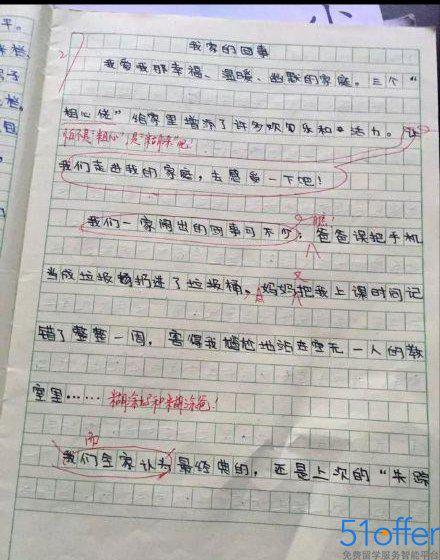 我家的囧事
我爱我那幸福、温暖、幽默的家庭。三个“
粗心佬”给家里增添了许多欢笑乐和活力。让
怕不是“粗心”是“糊涂”吧！
我们走进我的家庭，去感受一下吧！
我们一家闹出的囧事可不少：爸爸误把手机
当成垃圾扔进了垃圾桶，妈妈把我上课时间记
错了整整一周，害得我尴尬地站在空无一人的教
室里……
我们全家认为最经典的，还是上次的“失踪
51offer
免费留学服务智能平台